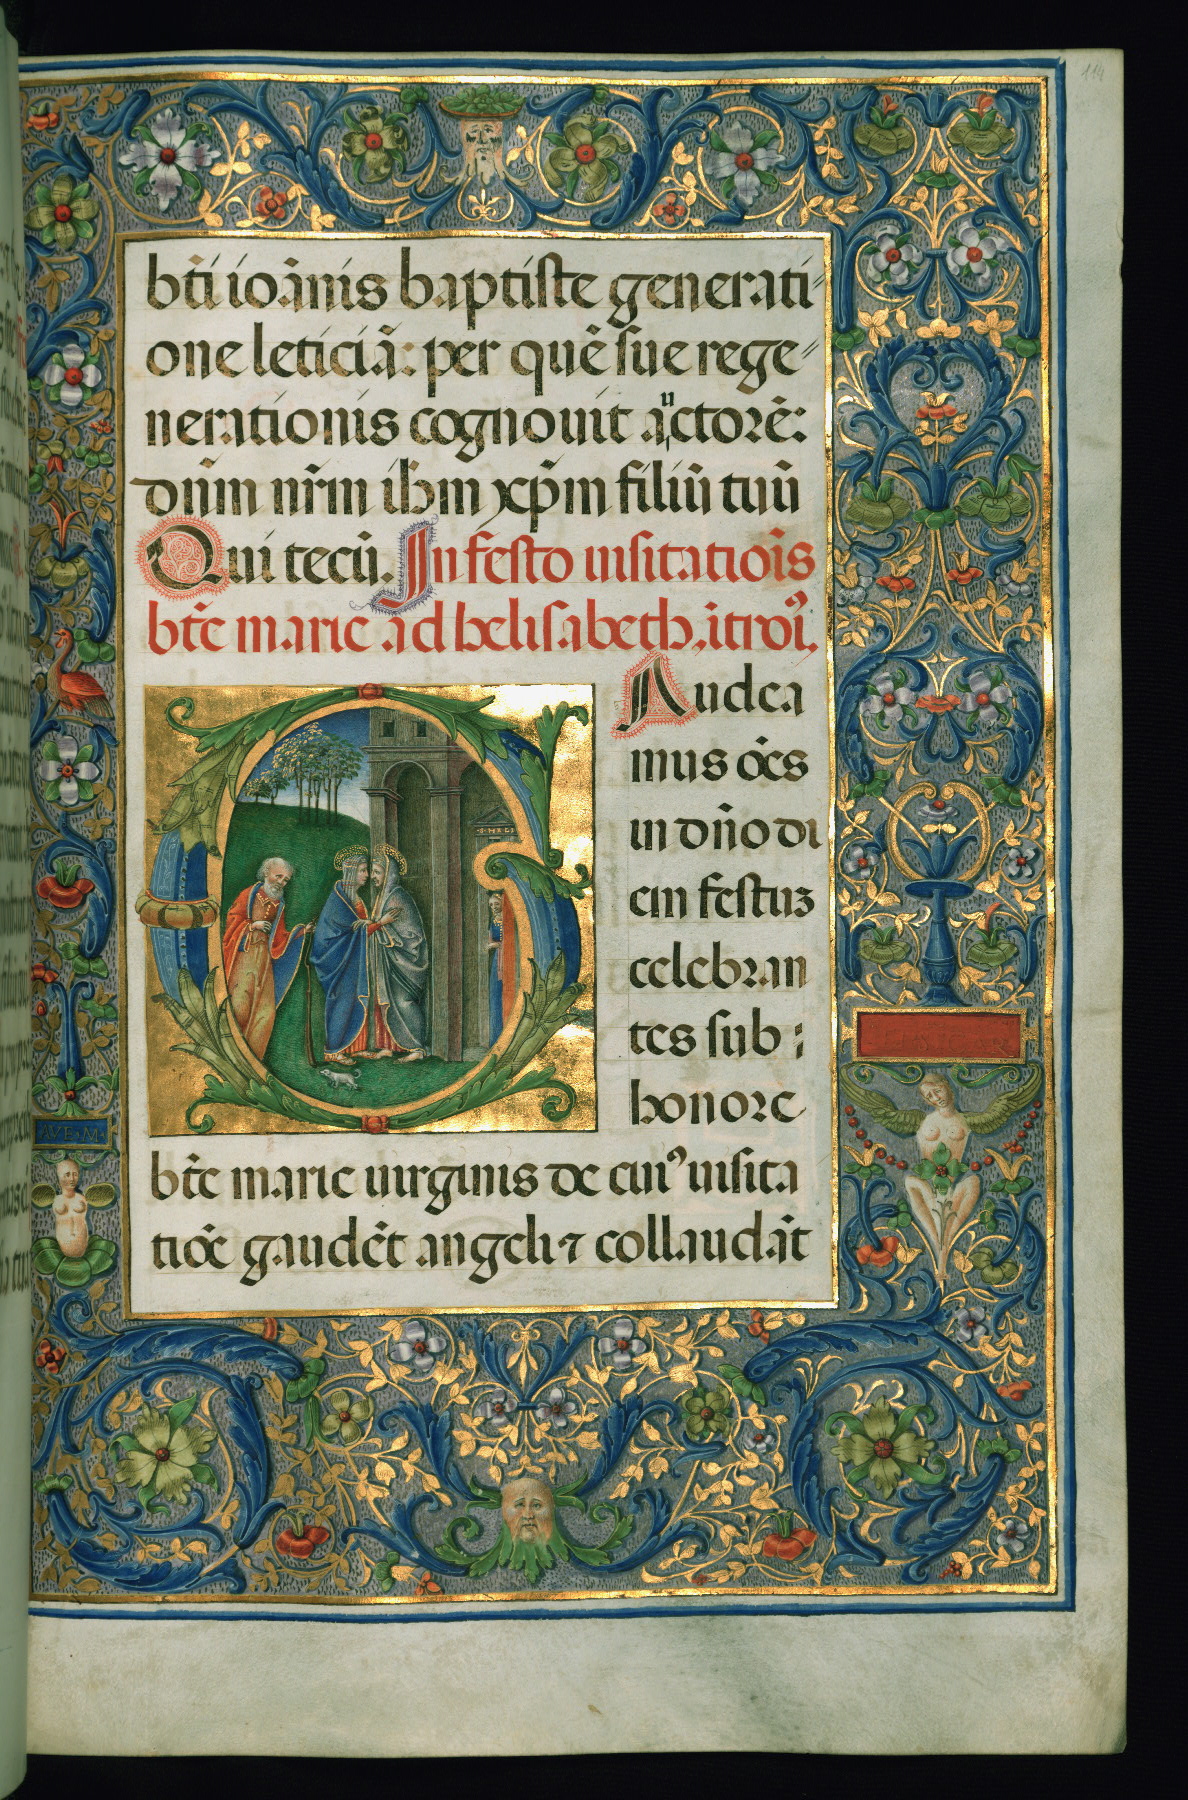 114
bt̄i ioānis baptiste generati〃
one leticiā: per quē sue rege〃
nerationis cognouit auctorē:
dn̄m nr̄m ihm xp̄m filiū tuū
Qui tecū. In festo uisitatiōis
bt̄e marie ad helisabeth, ītroī.
Audea
mus oēs
G in dn̄o di
em festuʒ
celebran
tes sub:
honore
bt̄e marie uirginis de cuiꝰ uisita
tiōe gaudēt angeli ⁊ collaudāt
AVE·M·